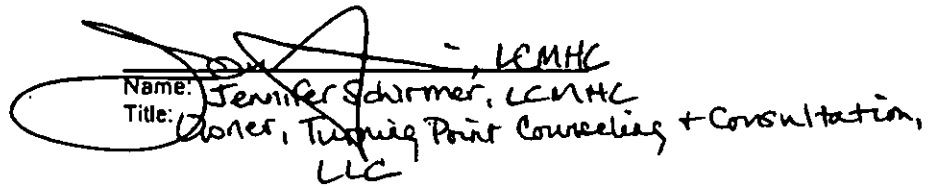 , LCMHC
Name: Jennifer Schirmer, LCMHC
Title: Owner, Turning Point Counseling + Consultation,
LLC